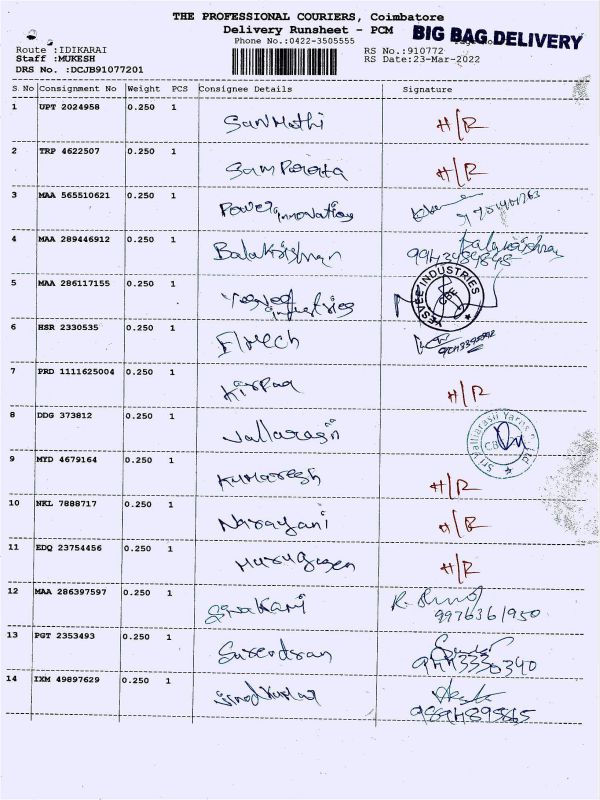 THE PROFESSIONAL COURIERS, Coimbatore
Delivery Runsheet - PCM
BIG BAG DELIVERY
Phone No.:0422-3505555
Route :IDIKARAI
Staff :MUKESH
DRS No. :DCJB91077201
RS No.:910772
RS Date:23-Mar-2022
S No Consignment No Weight PCS Consignee Details Signature
1 UPT 2024958 0.250 1
SanMathi H/R
2 TRP 4622507 0.250 1
H/R
3 MAA 565510621 0.250 1
Power innovations
4 MAA 289446912 0.250 1
Balakrishnan Balakrishnan
5 MAA 286117155 0.250 1
industries YESVEE INDUSTRIES CBE
6 HSR 2330535 0.250 1
7 PRD 1111625004 0.250 1
H/R
8 DDG 373812 0.250 1
Vallarasi Sri Vallarasi Yarns
9 MYD 4679164 0.250 1
Kumaresh H/R
10 NKL 7888717 0.250 1
Narayani H/R
11 EDQ 23754456 0.250 1
Murugesen H/R
12 MAA 286397597 0.250 1
Sivakami
9976361950
13 PGT 2353493 0.250 1
Surendran
14 IXM 49897629 0.250 1